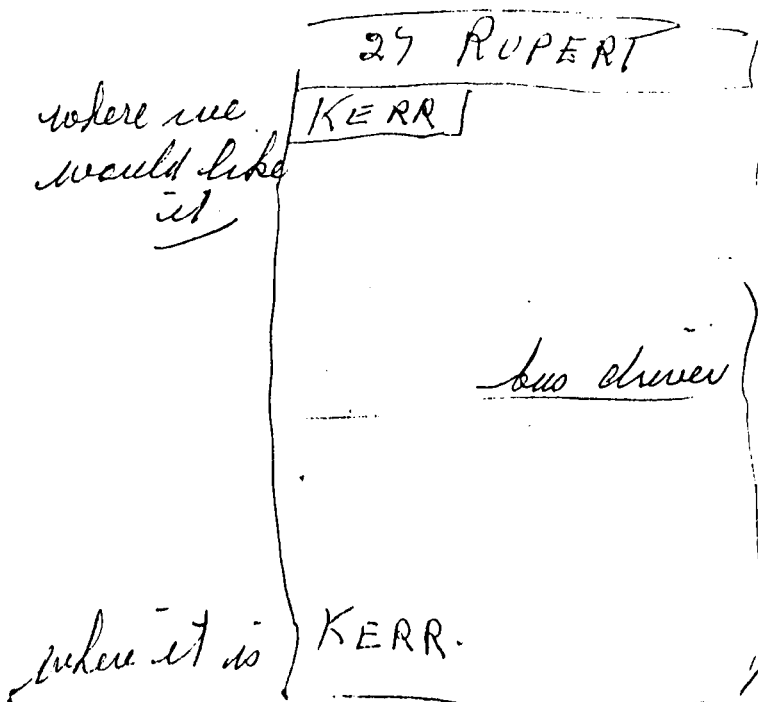 27 RUPERT
where we
would like
it
KERR
bus driver
where it is
KERR.